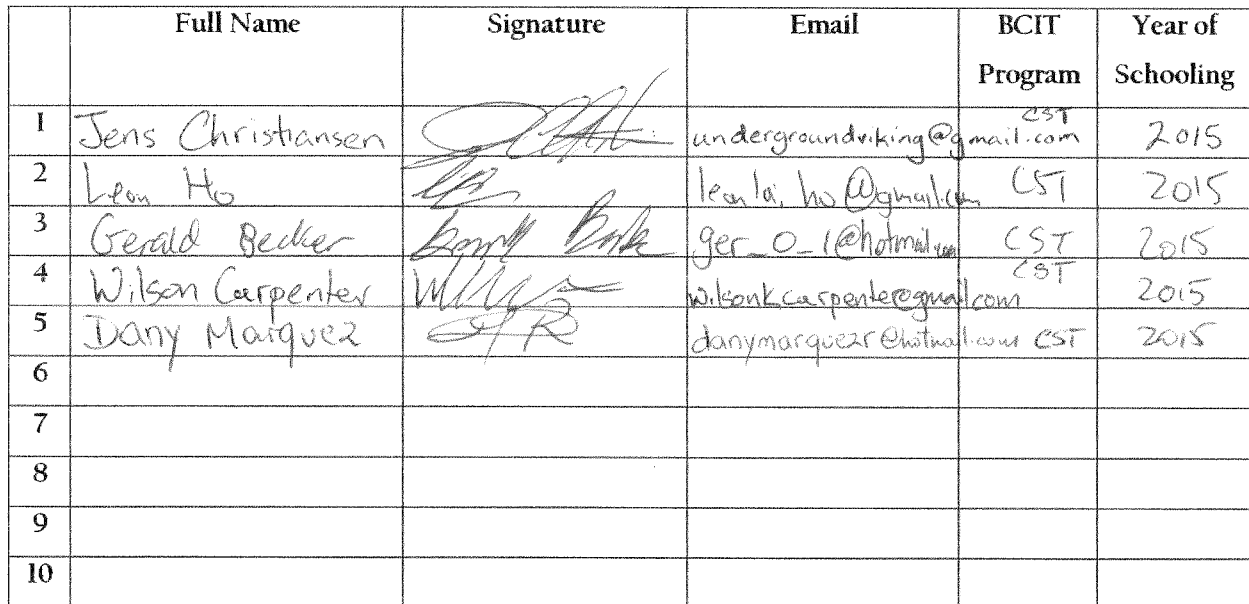 Full Name Signature Email BCIT Program Year of Schooling
1 Jens Christiansen undergroundviking@gmail.com CST 2015
2 Leon Ho CST 2015
3 Gerald Becker ger_0_1@hotmail.com CST 2015
4 Wilson Carpenter wilsonkcarpenter@gmail.com CST 2015
5 Dany Marquez danymarquezr@hotmail.com CST 2015
6
7
8
9
10